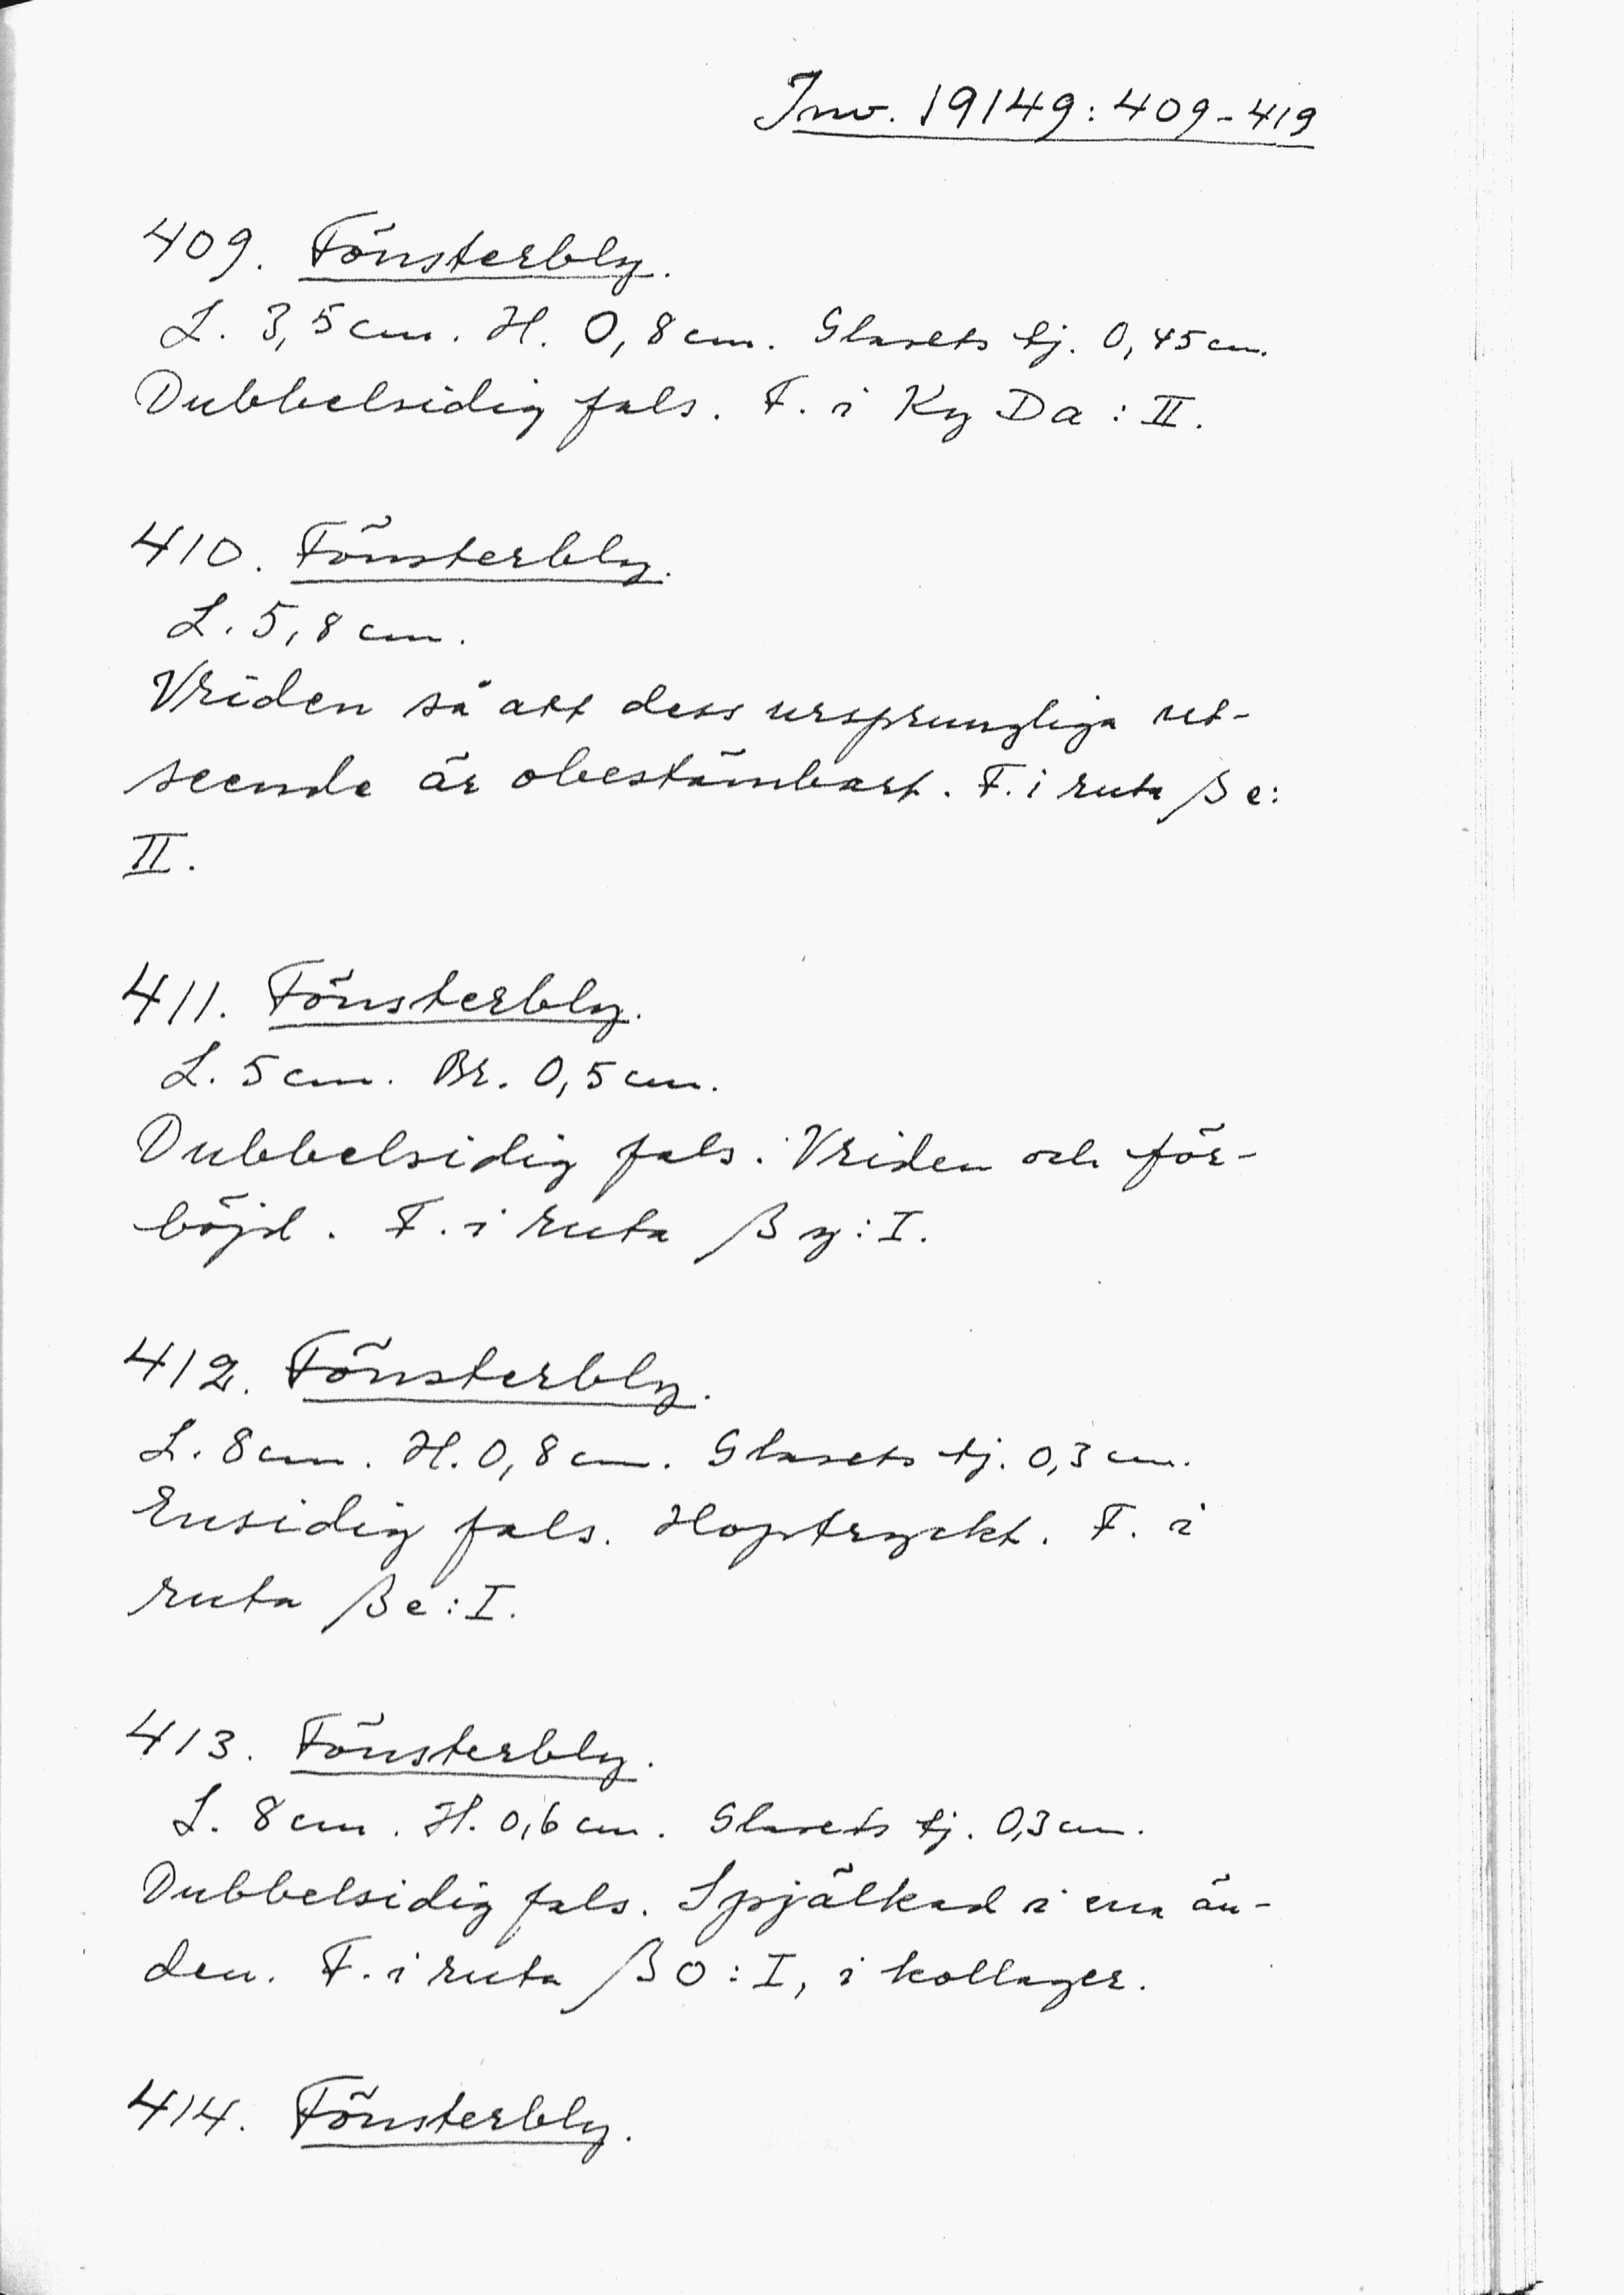 Inv. 19149:409-419
409. Fönsterbly.
L. 3,5 cm. H. 0,8 cm. Glasets tj. 0,45 cm.
Dubbelsidig fals. F. i Ky Da : II.
410. Fönsterbly.
L. 5,8 cm.
Vriden så att dess ursprungliga ut-
seende är obestämbart. F. i ruta βe:
II.
411. Fönsterbly.
L. 5 cm. Br. 0,5 cm.
Dubbelsidig fals. Vriden och för-
böjd. F. i ruta βy:I.
412. Fönsterbly.
L. 8 cm. H. 0,8 cm. Glasets tj. 0,3 cm.
Ensidig fals. Hoptryckt. F. i
ruta βe:I.
413. Fönsterbly.
L. 8 cm. H. 0,6 cm. Glasets tj. 0,3 cm.
Dubbelsidig fals. Spjälkad i ena än-
den. F. i ruta βo:I, i kollager.
414. Fönsterbly.